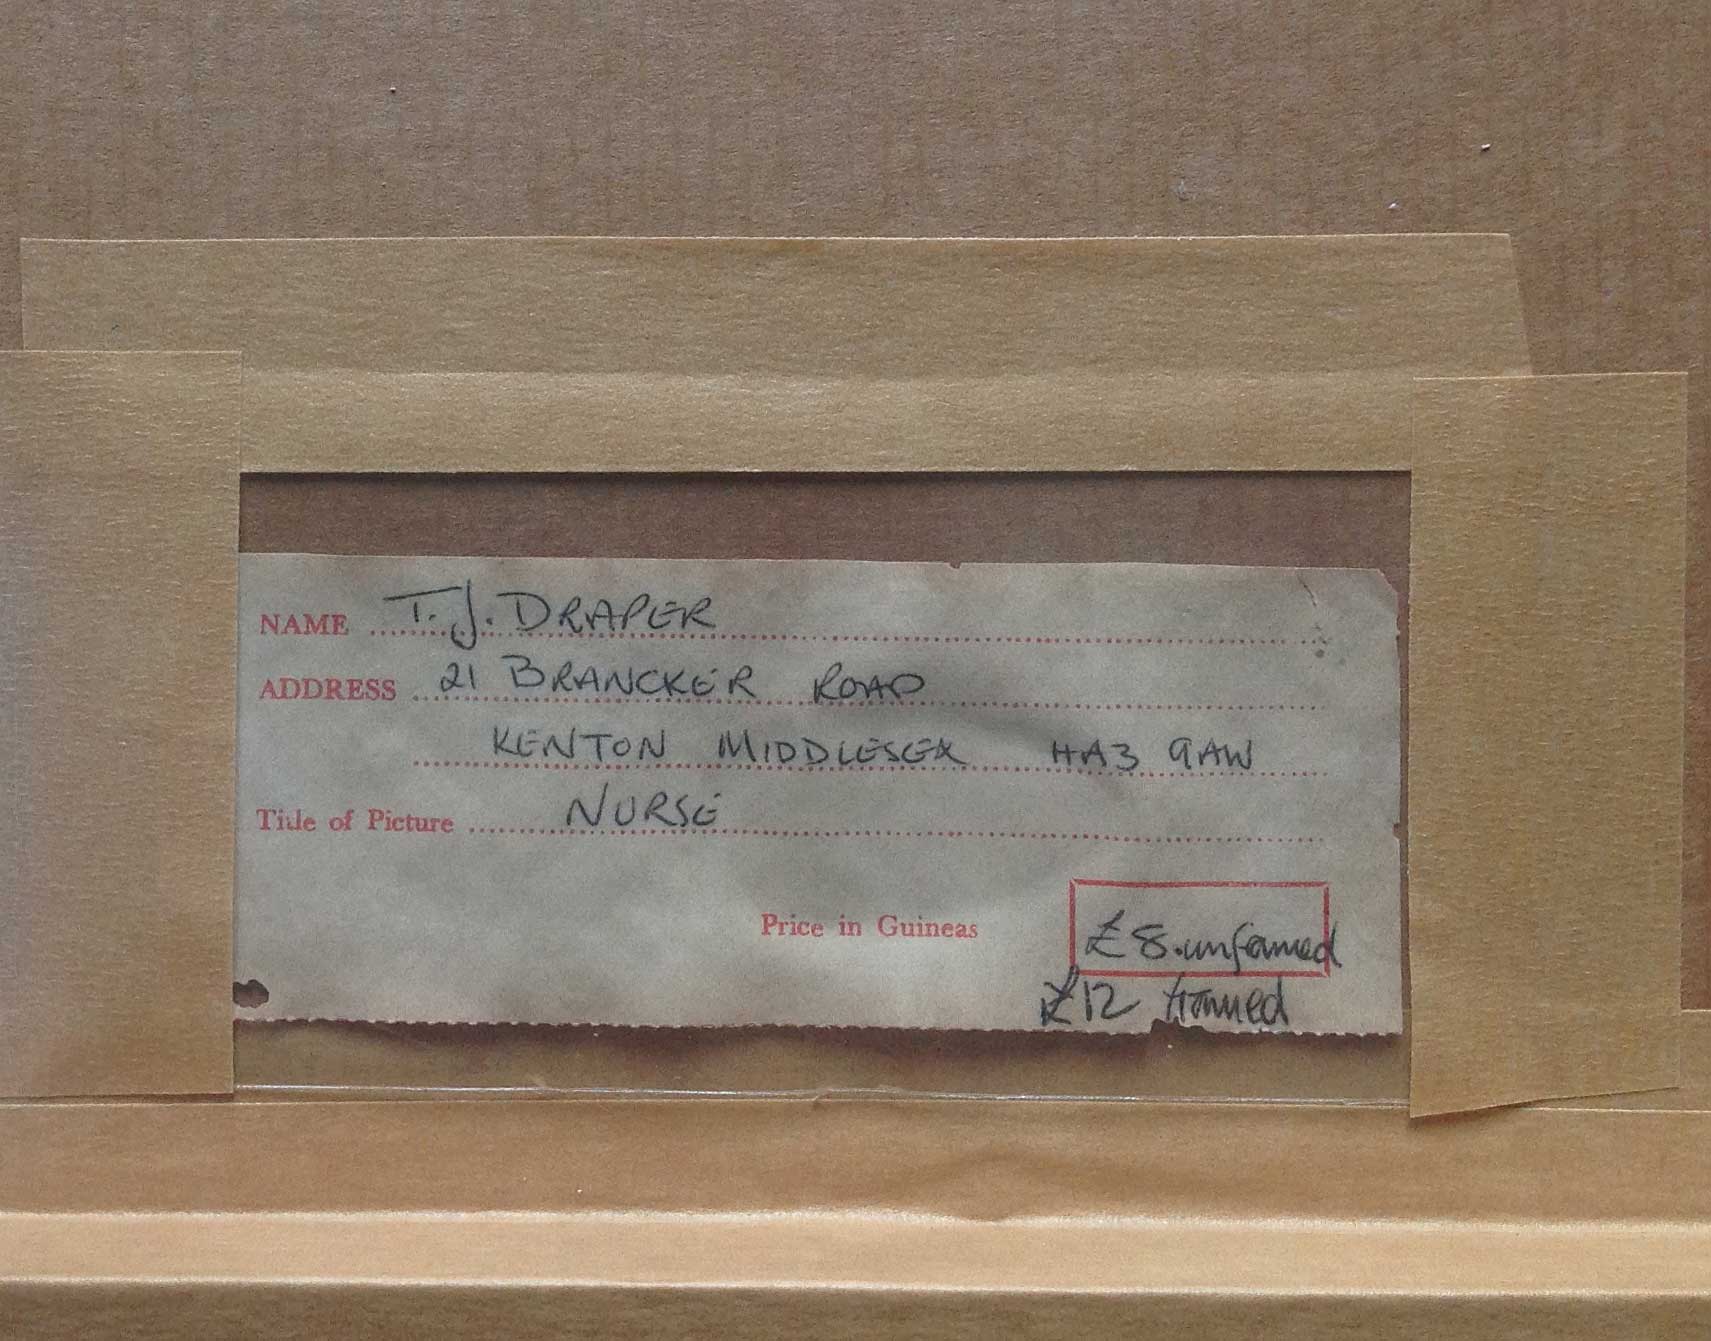 NAME T.J. DRAPER
ADDRESS 21 BRANCKER ROAD
KENTON MIDDLESEX HA3 9AW
Title of Picture NURSE
Price in Guineas £8.unframed
£12 framed